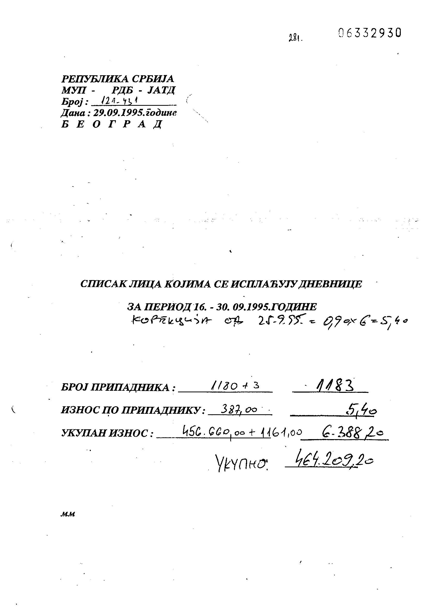 281. 06332930
РЕПУБЛИКА СРБИЈА
МУП - РДБ - ЈАТД
Број : 121-431
Дана : 29.09.1995.године
Б Е О Г Р А Д
СПИСАК ЛИЦА КОЈИМА СЕ ИСПЛАЋУЈУ ДНЕВНИЦЕ
ЗА ПЕРИОД 16. - 30. 09.1995.ГОДИНЕ
КОРЕКЦИЈА ОД 25.9.95. = 0,90x6=5,40
БРОЈ ПРИПАДНИКА : 1180 + 3 1183
ИЗНОС ПО ПРИПАДНИКУ : 387,00 5,40
УКУПАН ИЗНОС : 456.660,00 + 1161,00 6.388,20
УКУПНО: 464.209,20
мм